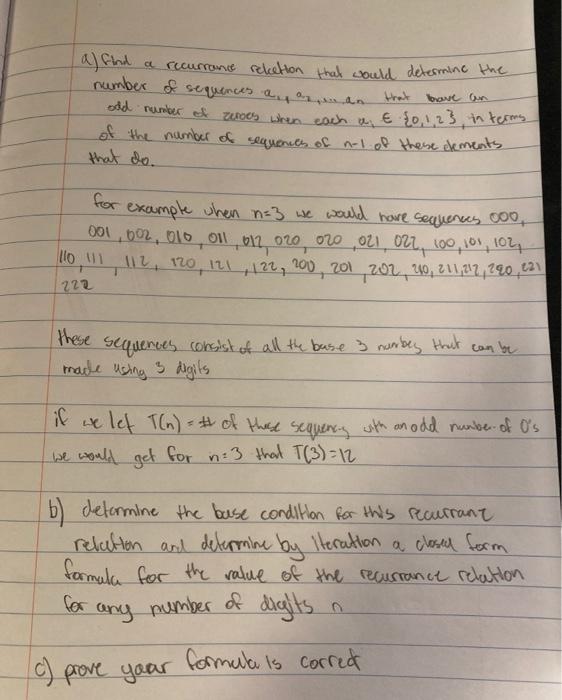 a) find a reccurrance relcation that would determine the
number of sequences a₁, a₂, ..., an that have an
odd number of zeroes when each aᵢ ∈ {0,1,2}, in terms
of the number of sequences of n-1 of these elements
that do.
for example when n=3 we would have sequences 000,
001, 002, 010, 011, 012, 020, 020, 021, 022, 100, 101, 102,
110, 111, 112, 120, 121, 122, 200, 201, 202, 210, 211, 212, 220, 221
222
these sequences consist of all the base 3 numbers that can be
made using 3 digits
if we let T(n) = # of these sequences with an odd number of 0's
we would get for n=3 that T(3)=12
b) determine the base condition for this recurrant
relation and determine by iteration a closed form
formula for the value of the recurrance relation
for any number of digits n
c) prove your formula is correct